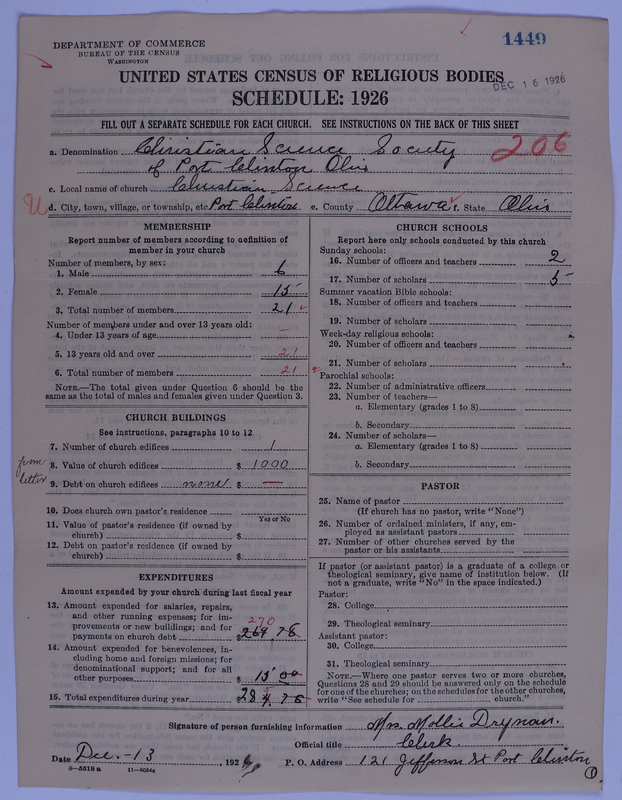 1449
DEPARTMENT OF COMMERCE
BUREAU OF THE CENSUS
WASHINGTON
UNITED STATES CENSUS OF RELIGIOUS BODIES
DEC 16 1926
SCHEDULE: 1926
FILL OUT A SEPARATE SCHEDULE FOR EACH CHURCH. SEE INSTRUCTIONS ON THE BACK OF THIS SHEET
a. Denomination Christian Science Society 206
of Port Clinton Ohio
c. Local name of church Christian Science
d. City, town, village, or township, etc. Port Clinton e. County Ottawa f. State Ohio
MEMBERSHIP
Report number of members according to definition of
member in your church
Number of members, by sex:
1. Male 6
2. Female 15
3. Total number of members 21
Number of members under and over 13 years old:
4. Under 13 years of age —
5. 13 years old and over 21
6. Total number of members 21
NOTE.—The total given under Question 6 should be the
same as the total of males and females given under Question 3.
CHURCH BUILDINGS
See instructions, paragraphs 10 to 12
7. Number of church edifices 1
from
letter
8. Value of church edifices $ 1000
9. Debt on church edifices none $ —
10. Does church own pastor's residence
Yes or No
11. Value of pastor's residence (if owned by
church) $
12. Debt on pastor's residence (if owned by
church) $
EXPENDITURES
Amount expended by your church during last fiscal year
13. Amount expended for salaries, repairs,
and other running expenses; for im-
provements or new buildings; and for
270
payments on church debt $ 269 78
14. Amount expended for benevolences, in-
cluding home and foreign missions; for
denominational support; and for all
other purposes $ 15 00
15. Total expenditures during year $ 284 78
CHURCH SCHOOLS
Report here only schools conducted by this church
Sunday schools:
16. Number of officers and teachers 2
17. Number of scholars 5
Summer vacation Bible schools:
18. Number of officers and teachers
19. Number of scholars
Week-day religious schools:
20. Number of officers and teachers
21. Number of scholars
Parochial schools:
22. Number of administrative officers
23. Number of teachers—
a. Elementary (grades 1 to 8)
b. Secondary
24. Number of scholars—
a. Elementary (grades 1 to 8)
b. Secondary
PASTOR
25. Name of pastor
(If church has no pastor, write "None")
26. Number of ordained ministers, if any, em-
ployed as assistant pastors
27. Number of other churches served by the
pastor or his assistants
If pastor (or assistant pastor) is a graduate of a college or
theological seminary, give name of institution below. (If
not a graduate, write "No" in the space indicated.)
Pastor:
28. College
29. Theological seminary
Assistant pastor:
30. College
31. Theological seminary
NOTE.—Where one pastor serves two or more churches,
Questions 28 and 29 should be answered only on the schedule
for one of the churches; on the schedules for the other churches,
write "See schedule for church."
Signature of person furnishing information Mrs. Mollie Drynan.
Official title Clerk.
Date Dec. - 13, 1926 P. O. Address 121 Jefferson St Port Clinton
8—5518 a 11—9054
1